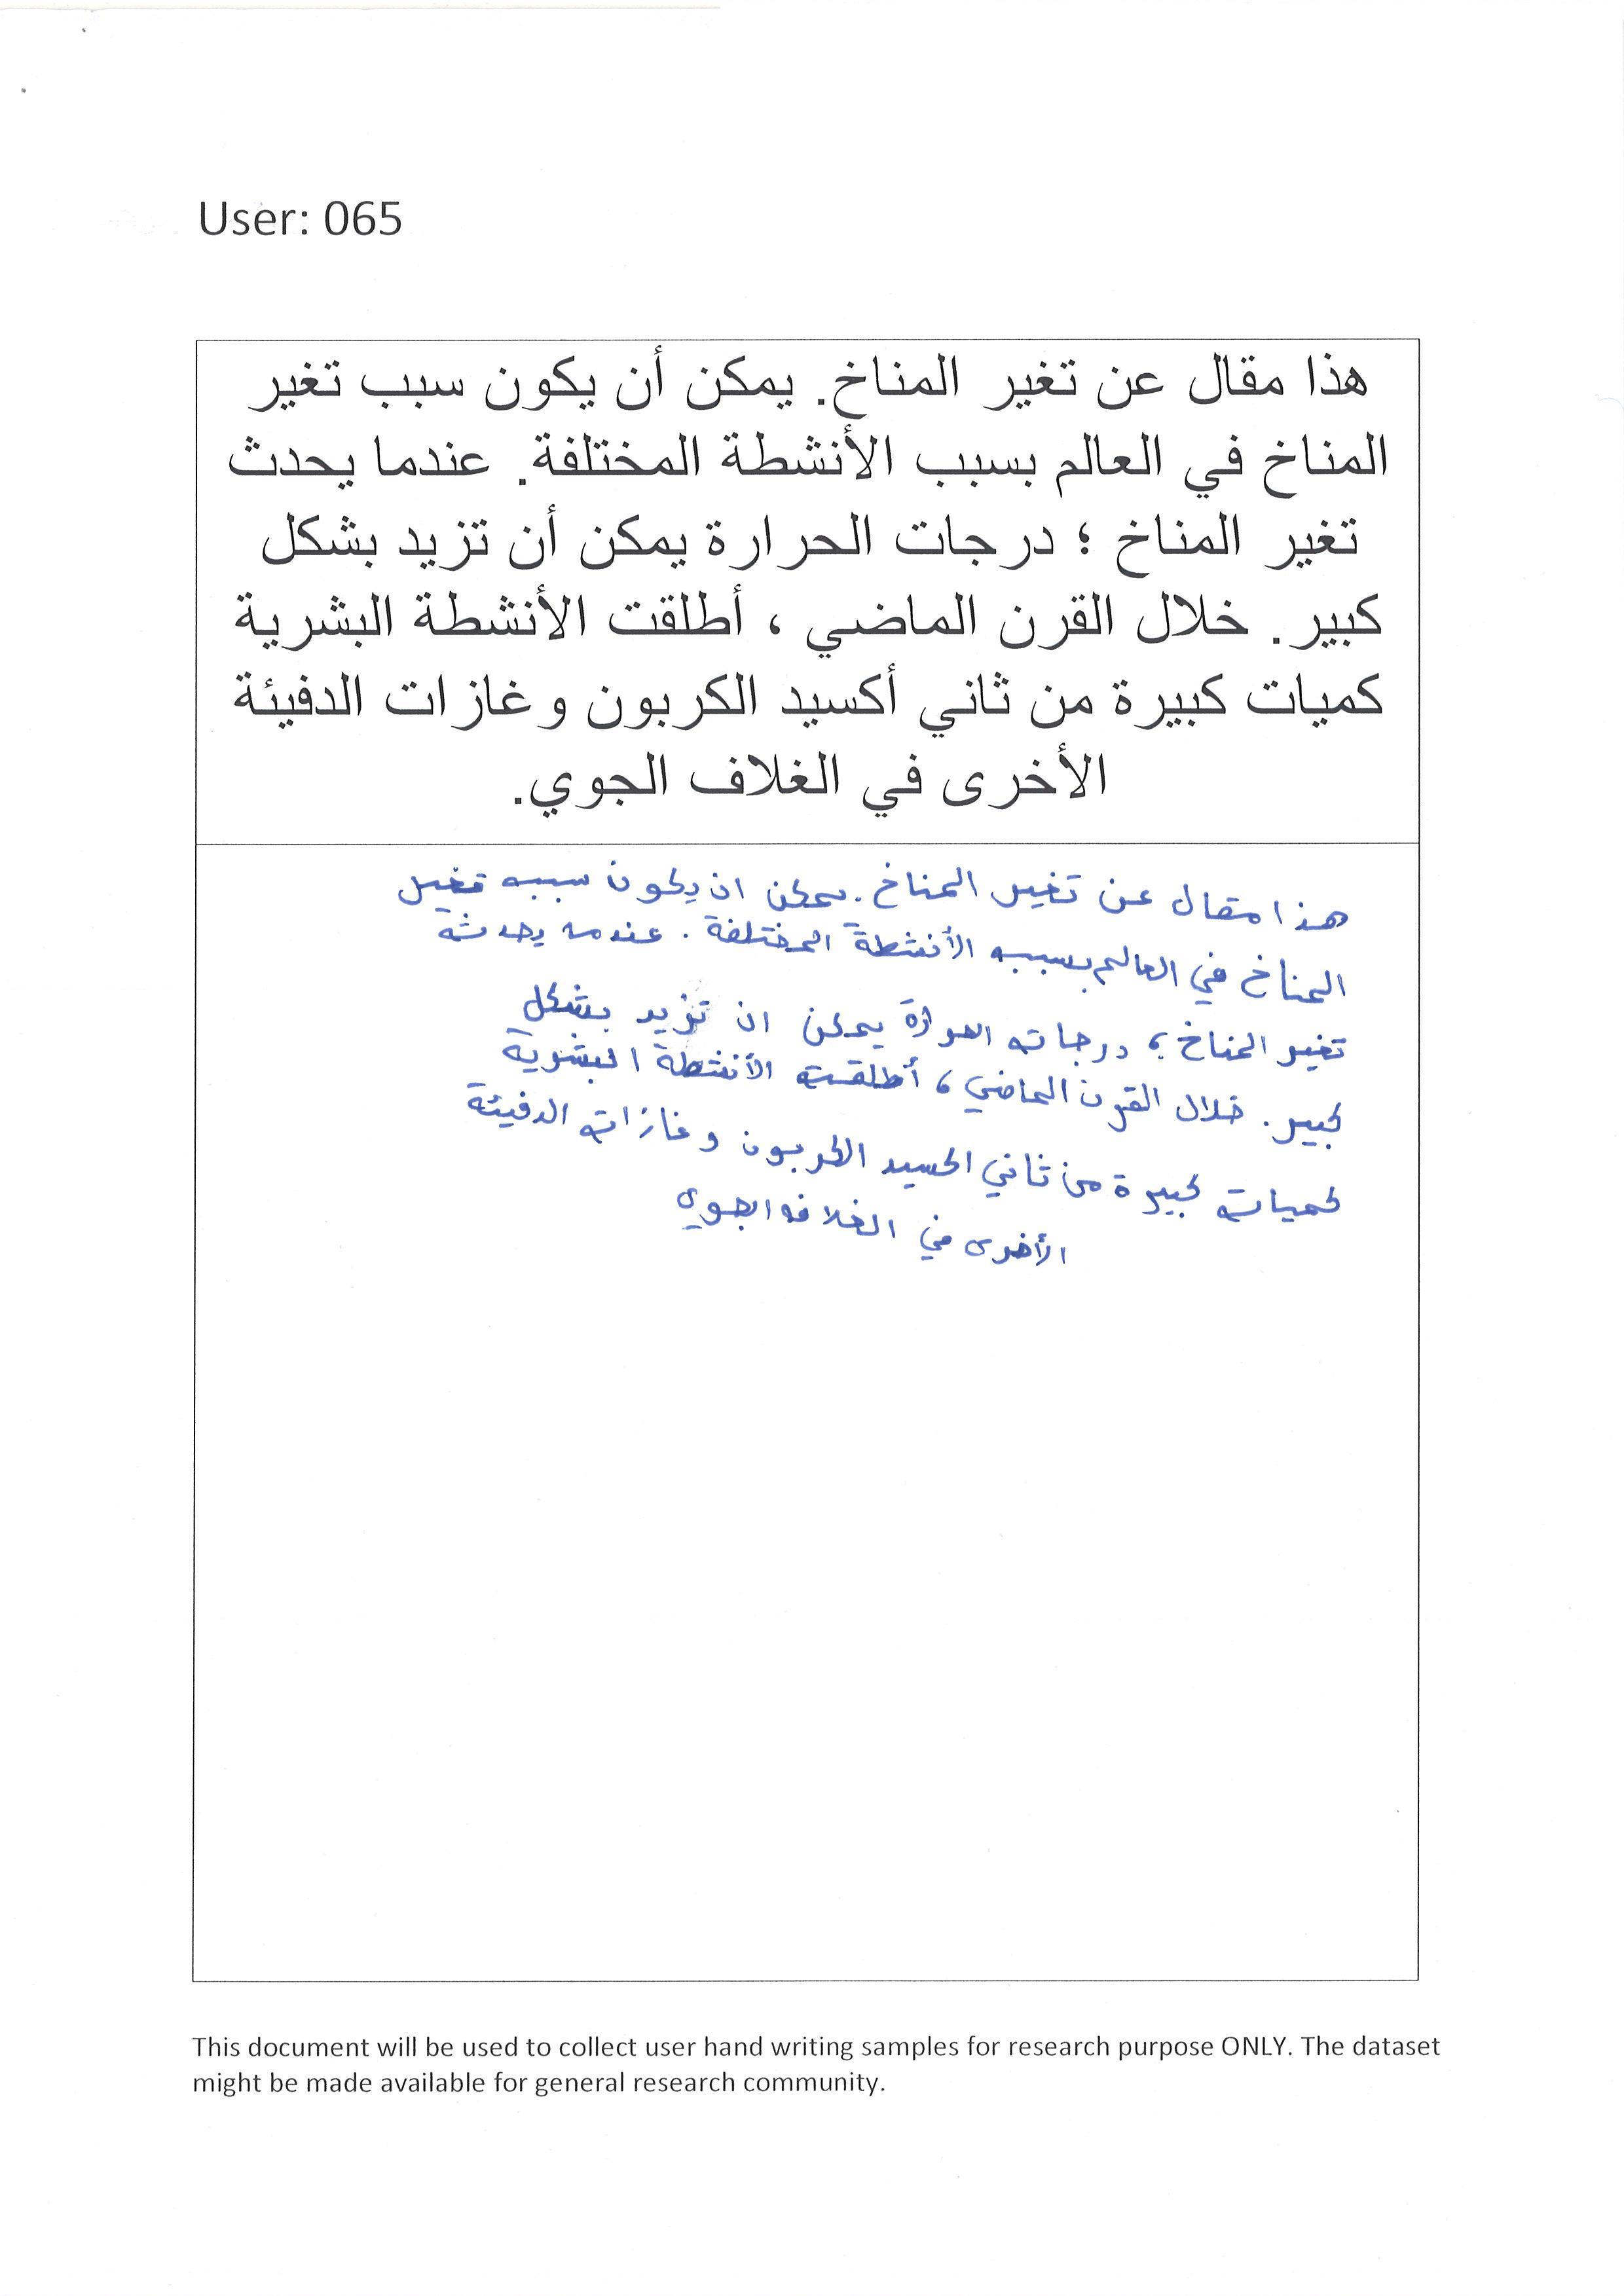 User: 065
هذا مقال عن تغير المناخ. يمكن أن يكون سبب تغير
المناخ في العالم بسبب الأنشطة المختلفة. عندما يحدث
تغير المناخ ؛ درجات الحرارة يمكن أن تزيد بشكل
كبير. خلال القرن الماضي ، أطلقت الأنشطة البشرية
كميات كبيرة من ثاني أكسيد الكربون وغازات الدفيئة
الأخرى في الغلاف الجوي.
هذا مقال عن تغير المناخ. يمكن ان يكون سبب تغير
المناخ في العالم بسبب الأنشطة المختلفة. عندما يحدث
تغير المناخ ؛ درجات الحرارة يمكن ان تزيد بشكل
كبير. خلال القرن الماضي ، أطلقت الأنشطة البشرية
كميات كبيرة من ثاني اكسيد الكربون وغازات الدفيئة
الأخرى في الغلاف الجوي
This document will be used to collect user hand writing samples for research purpose ONLY. The dataset
might be made available for general research community.